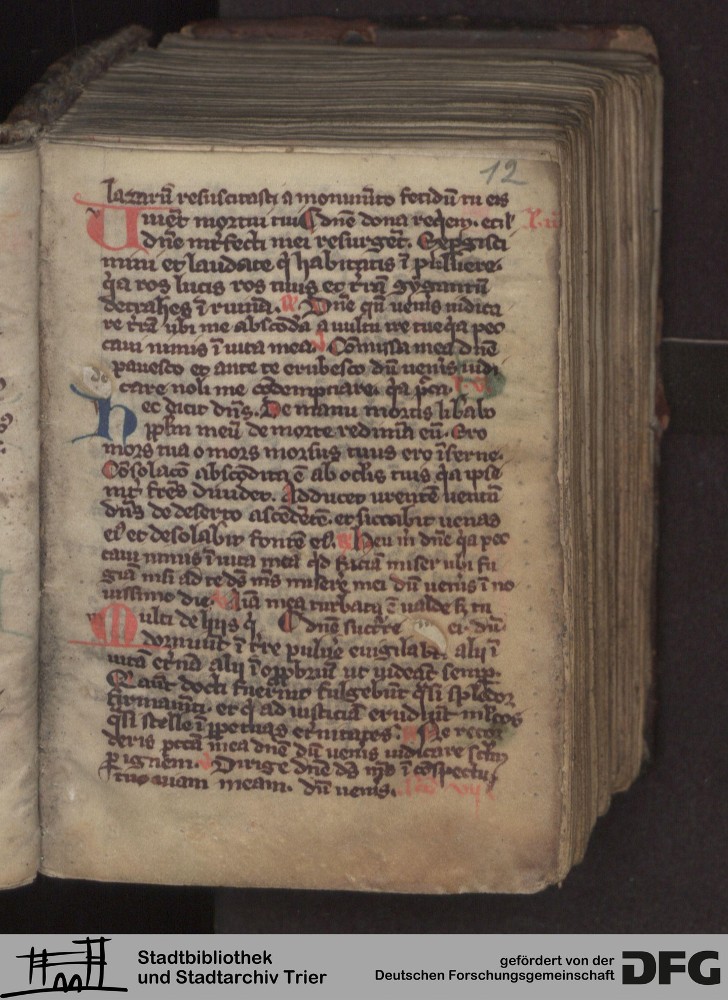 12
lazarū resuscitasti a monumēto fetidū tu eis
Uiuēt mortui tui dn̄e dona reqem. et il
dn̄e int̄fecti mei resurgēt. Expgisci
mini et laudate q̇ habitatis ī puluere.
q̇a ros lucis ros tuus et t̄rā gygantū
detrahes ī ruinā. Dn̄e qn̄ uenis iudica
re t̄rā ubi me abscōdā a uultu ire tue q̇a pec
caui nimis ī uita mea. Cōmissa mea dn̄e
pauesco et ante te erubesco dū uenis iudi
care noli me cōdempnare. q̇a pcā
Hec dicit dn̄s. De manu mortis libabo
pplm meū de morte redimā eū. Ero
mors tua o mors morsus tuus ero īferne.
Cōsolacō abscōdita ē ab oclis tuis q̇a ipse
int̄ fr̄es diuidet. Adducet urentē uentū
dn̄s de deserto ascēdētē. et siccabit uenas
eī et desolabit fontē eī. Heu m̄ dn̄e q̇a pec
caui nimis ī uita mea q̇d faciā miser ubi fu
giā nisi ad te ds̄ ms̄ miserē mei dū uenis ī no
uissimo die. Aīa mea turbata ē ualde s̄ tu
dn̄e succ̄re ei. dū
Multi de hijs q̇
dormiūt ī t̄re puluē euigilabt. alij ī
uitā et̄nā alij ī opp̄briū ut uideāt semp.
Q̇ aūt docti fuerint fulgebūt q̇si splēdor
firmamēti. et q̇ ad iusticiā erudiūt ml̄tos
q̇si stelle ī ppetuas et̄nitates. Ne recor
deris pctā mea dn̄e dū uenis iudicare sclm
p ignem. Dirige dn̄e ds̄ ms̄ ī cōspectu
tuo uiam meam. dū uenis.
Stadtbibliothek
und Stadtarchiv Trier
gefördert von der
Deutschen Forschungsgemeinschaft
DFG